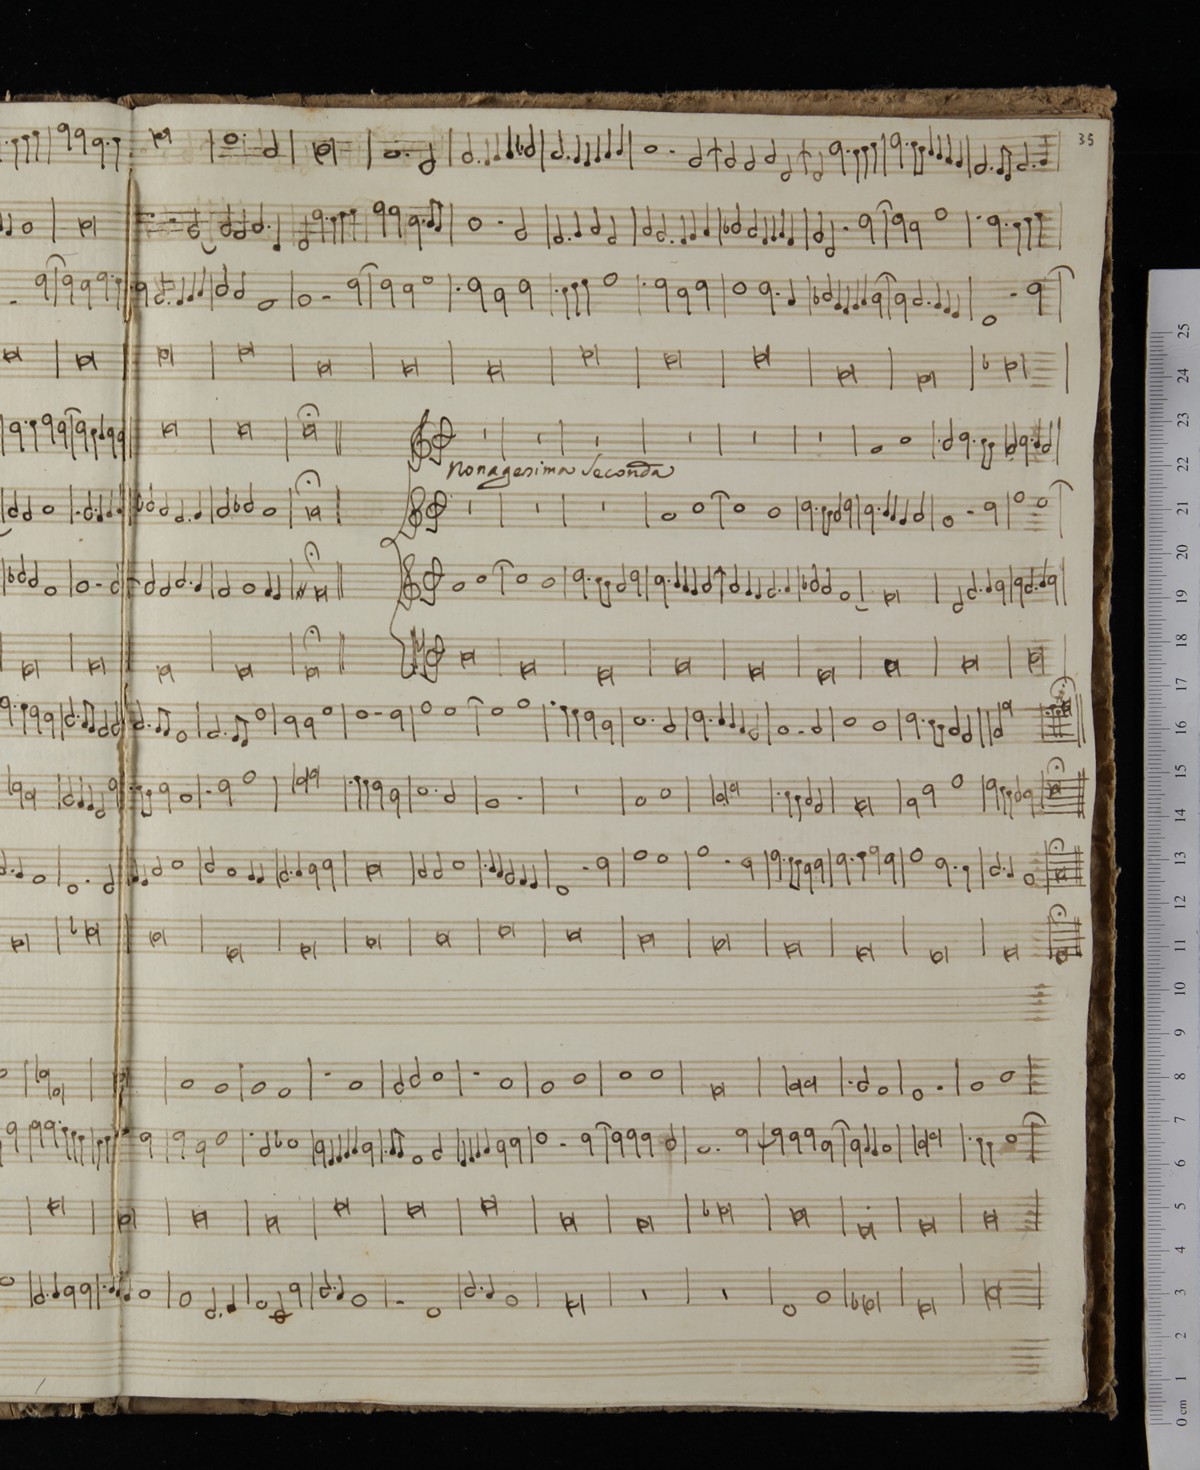 35
Nonagesima Seconda
25
24
23
22
21
20
19
18
17
16
15
14
13
12
11
10
9
8
7
6
5
4
3
2
1
0 cm